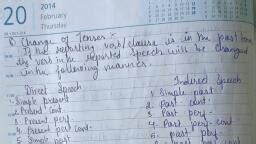 20
2014
February
Thursday
② Change of Tenses :-
If the reporting verb/clause is in the past tense
the verb in the reported speech will be changed
in the following manner.
Direct Speech Indirect Speech
1. Simple present 1. Simple past
2. Present cont. 2. Past cont.
3. Present perf. 3. Past perf.
4. Present perf. cont. 4. Past perf. cont
5. Simple past 5. past perf.